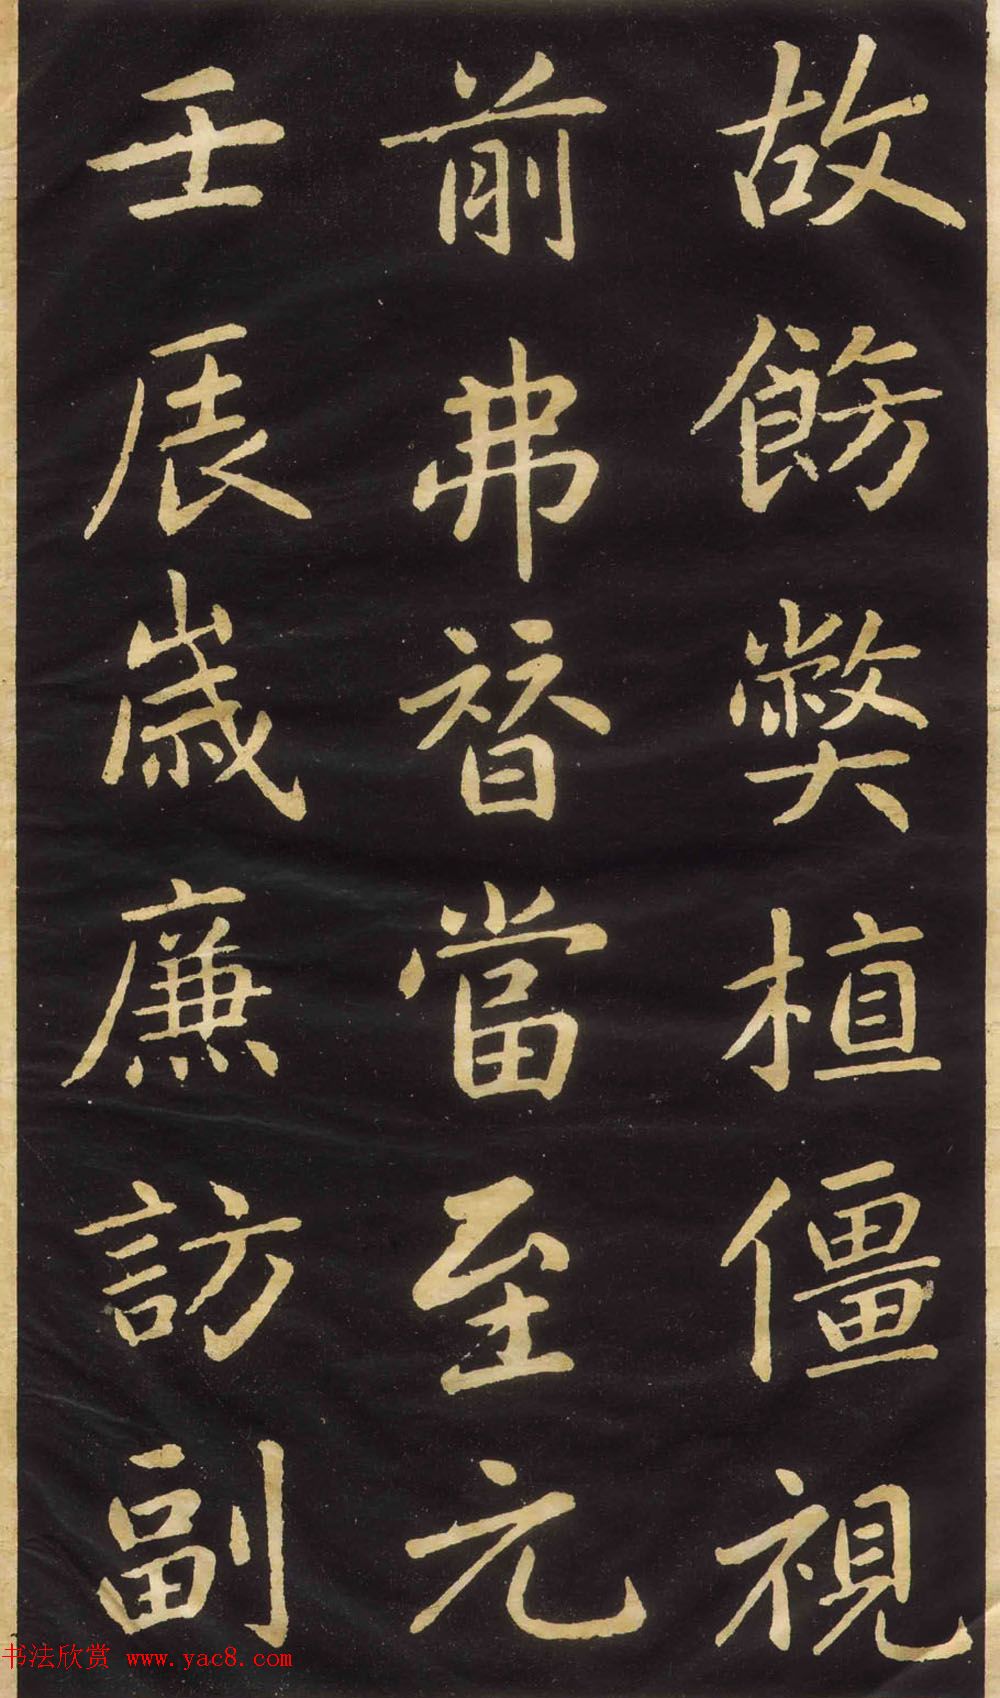 故飭獘植僵視
前弗替當至元
壬辰歲廉訪副
书法欣赏 www.yac8.com